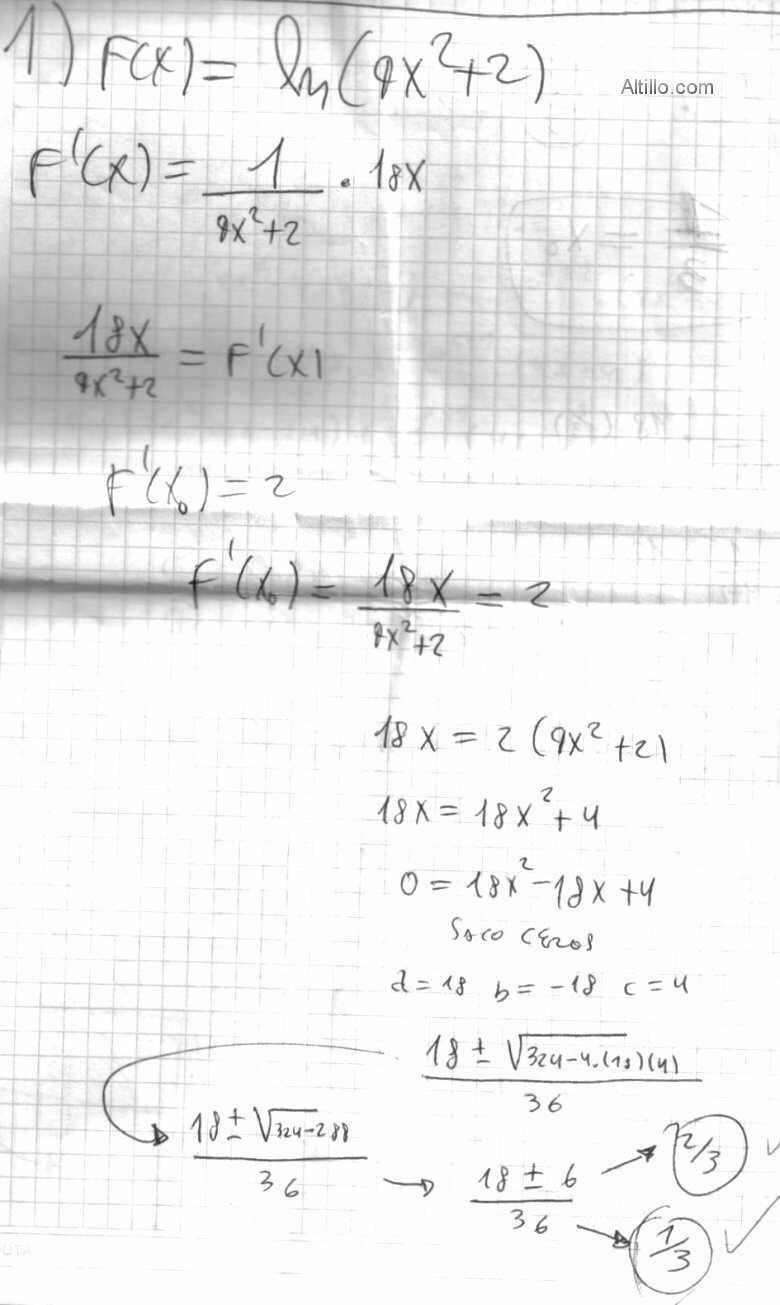 1) F(x) = ln(9x²+2)
Altillo.com
F'(x) = 1/(9x²+2) . 18x
18x/(9x²+2) = F'(x)
F'(x₀) = 2
F'(x₀) = 18x/(9x²+2) = 2
18x = 2(9x²+2)
18x = 18x²+4
0 = 18x²-18x+4
SACO CEROS
a = 18 b = -18 c = 4
(18 ± √(324-4.(18)(4)))/36
(18 ± √(324-288))/36 → (18 ± 6)/36 → 2/3 ✓
→ 1/3 ✓